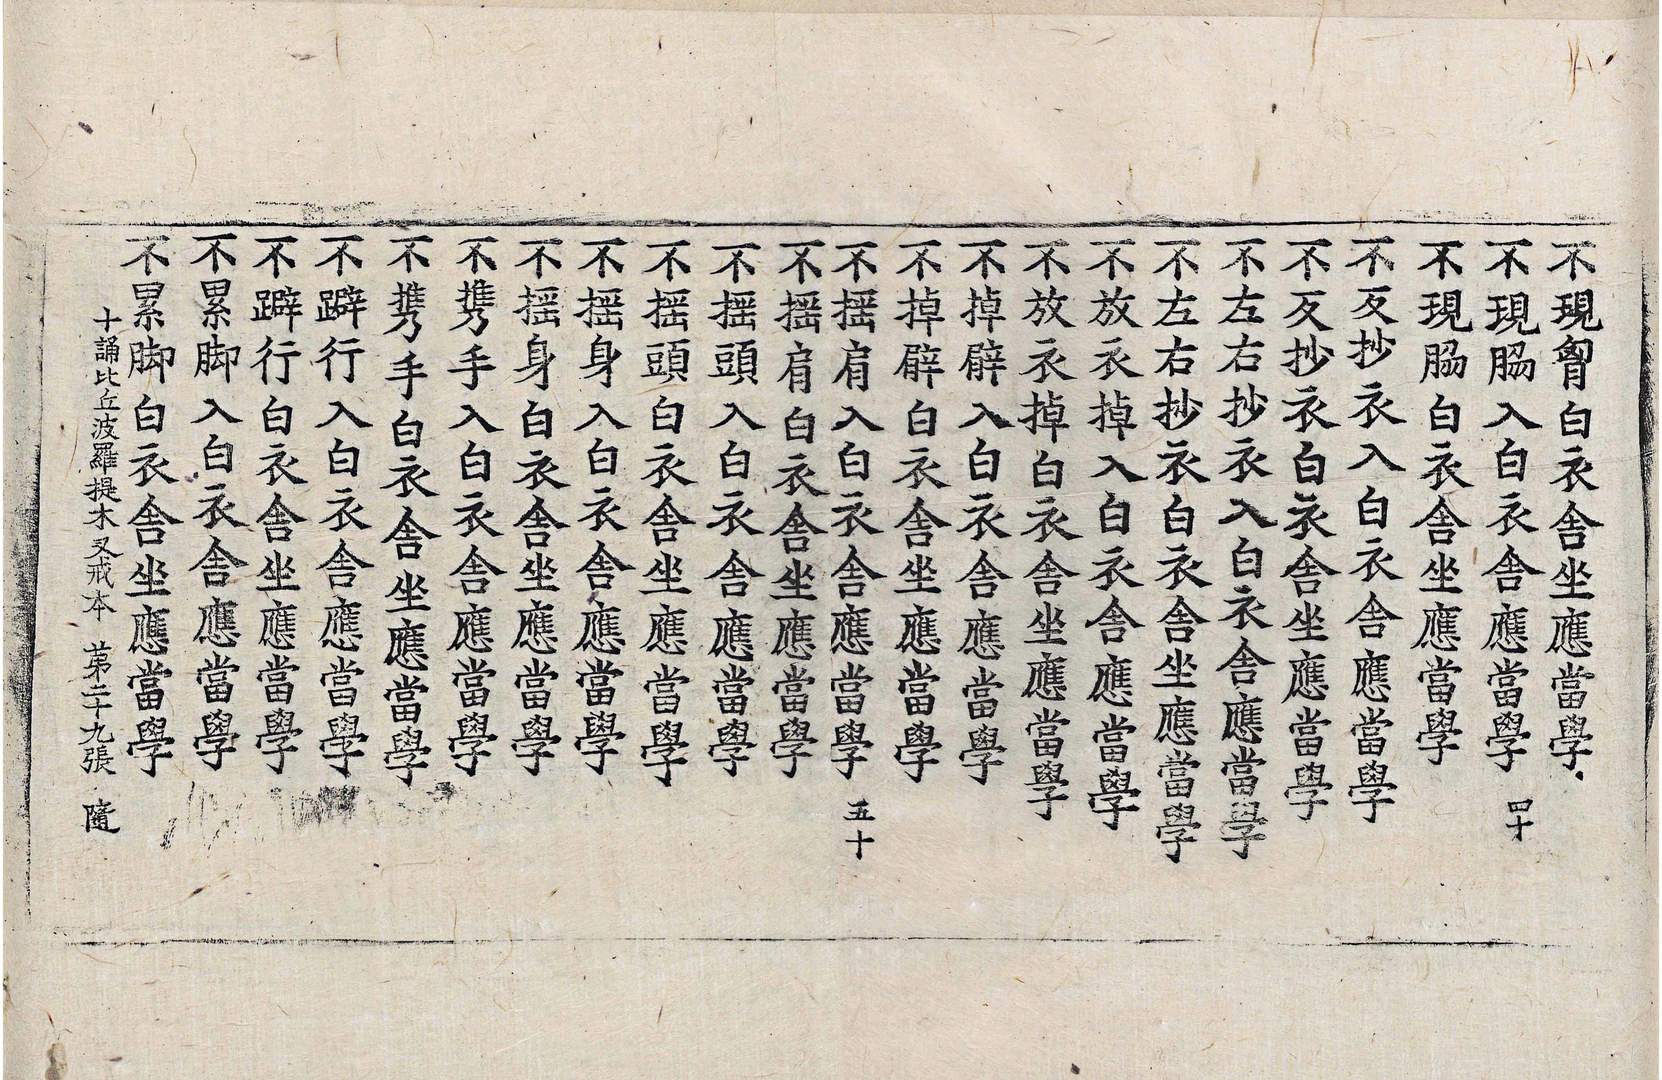 不現胷白衣舎坐應當學
不現脇入白衣舎應當學 四十
不現脇白衣舎坐應當學
不反抄衣入白衣舎應當學
不反抄衣白衣舎坐應當學
不左右抄衣入白衣舎應當學
不左右抄衣白衣舎坐應當學
不放衣掉入白衣舎應當學
不放衣掉白衣舎坐應當學
不掉臂入白衣舎應當學
不掉臂白衣舎坐應當學
不揺肩入白衣舎應當學 五十
不揺肩白衣舎坐應當學
不揺頭入白衣舎應當學
不揺頭白衣舎坐應當學
不揺身入白衣舎應當學
不揺身白衣舎坐應當學
不携手入白衣舎應當學
不携手白衣舎坐應當學
不躃行入白衣舎應當學
不躃行白衣舎坐應當學
不累脚入白衣舎應當學
不累脚白衣舎坐應當學
十誦比丘波羅提木叉戒本 苐二十九張 隨